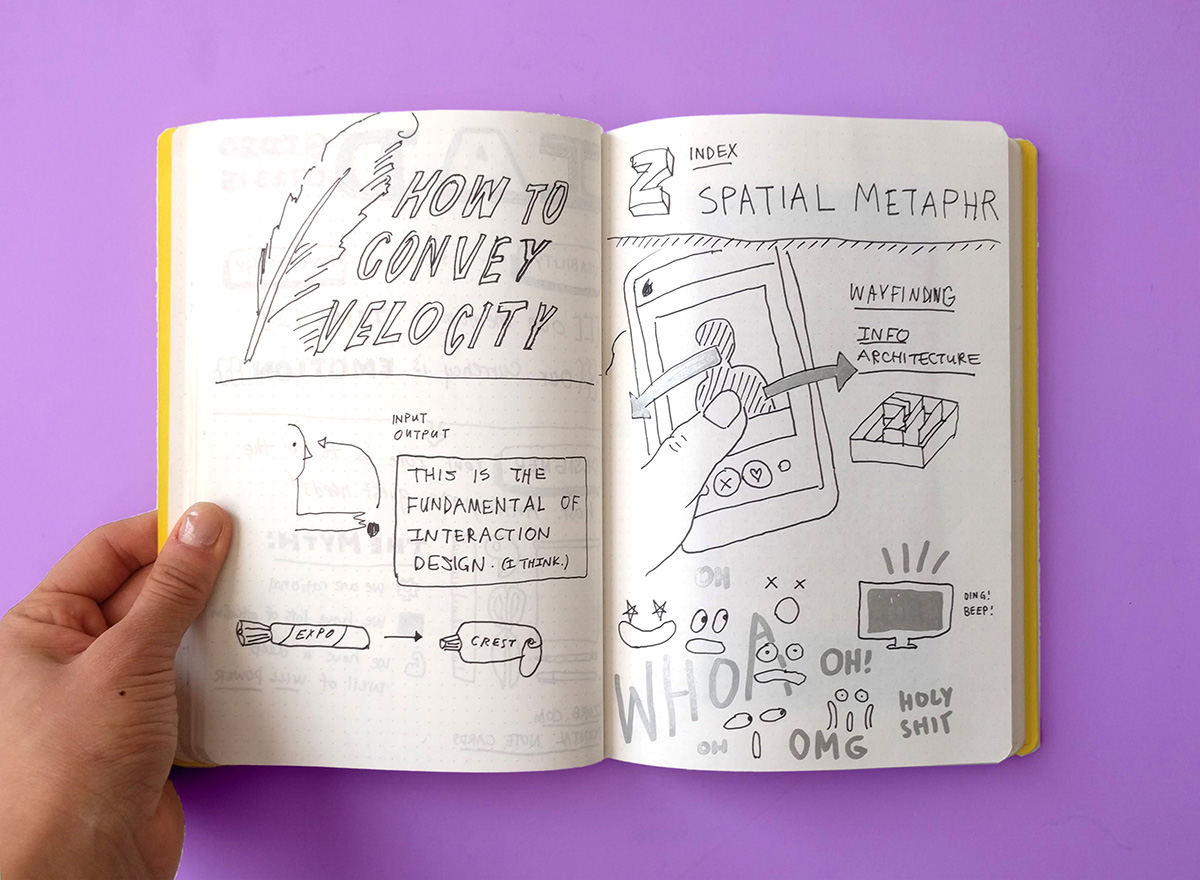 HOW TO
CONVEY
VELOCITY
INPUT
OUTPUT
THIS IS THE
FUNDAMENTAL OF
INTERACTION
DESIGN. (I THINK.)
EXPO
CREST
Z INDEX
SPATIAL METAPHR
WAYFINDNG
INFO
ARCHITECTURE
DING!
BEEP!
OH
WHOA
OH!
HOLY
SHIT
OH
OMG